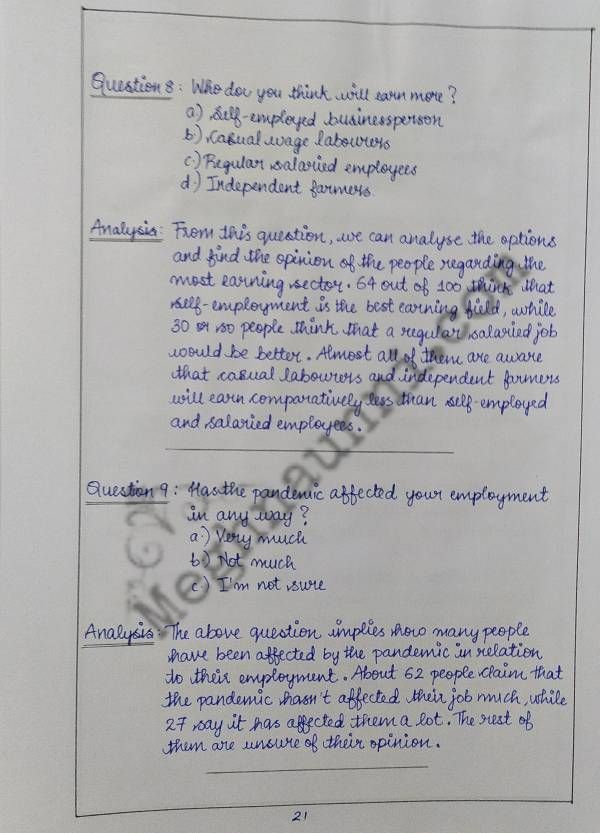 Question 8: Who do you think will earn more?
a.) Self-employed businessperson
b.) Casual wage labourers
c.) Regular salaried employees
d.) Independent farmers.
Analysis: From this question, we can analyse the options
and find the opinion of the people regarding the
most earning sector. 64 out of 100 think that
self-employment is the best earning field, while
30 or so people think that a regular salaried job
would be better. Almost all of them are aware
that casual labourers and independent farmers
will earn comparatively less than self-employed
and salaried employees.
Question 9: Has the pandemic affected your employment
in any way?
a.) Very much
b.) Not much
c.) I'm not sure
Analysis: The above question implies how many people
have been affected by the pandemic in relation
to their employment. About 62 people claim that
the pandemic hasn't affected their job much, while
27 say it has affected them a lot. The rest of
them are unsure of their opinion.
21